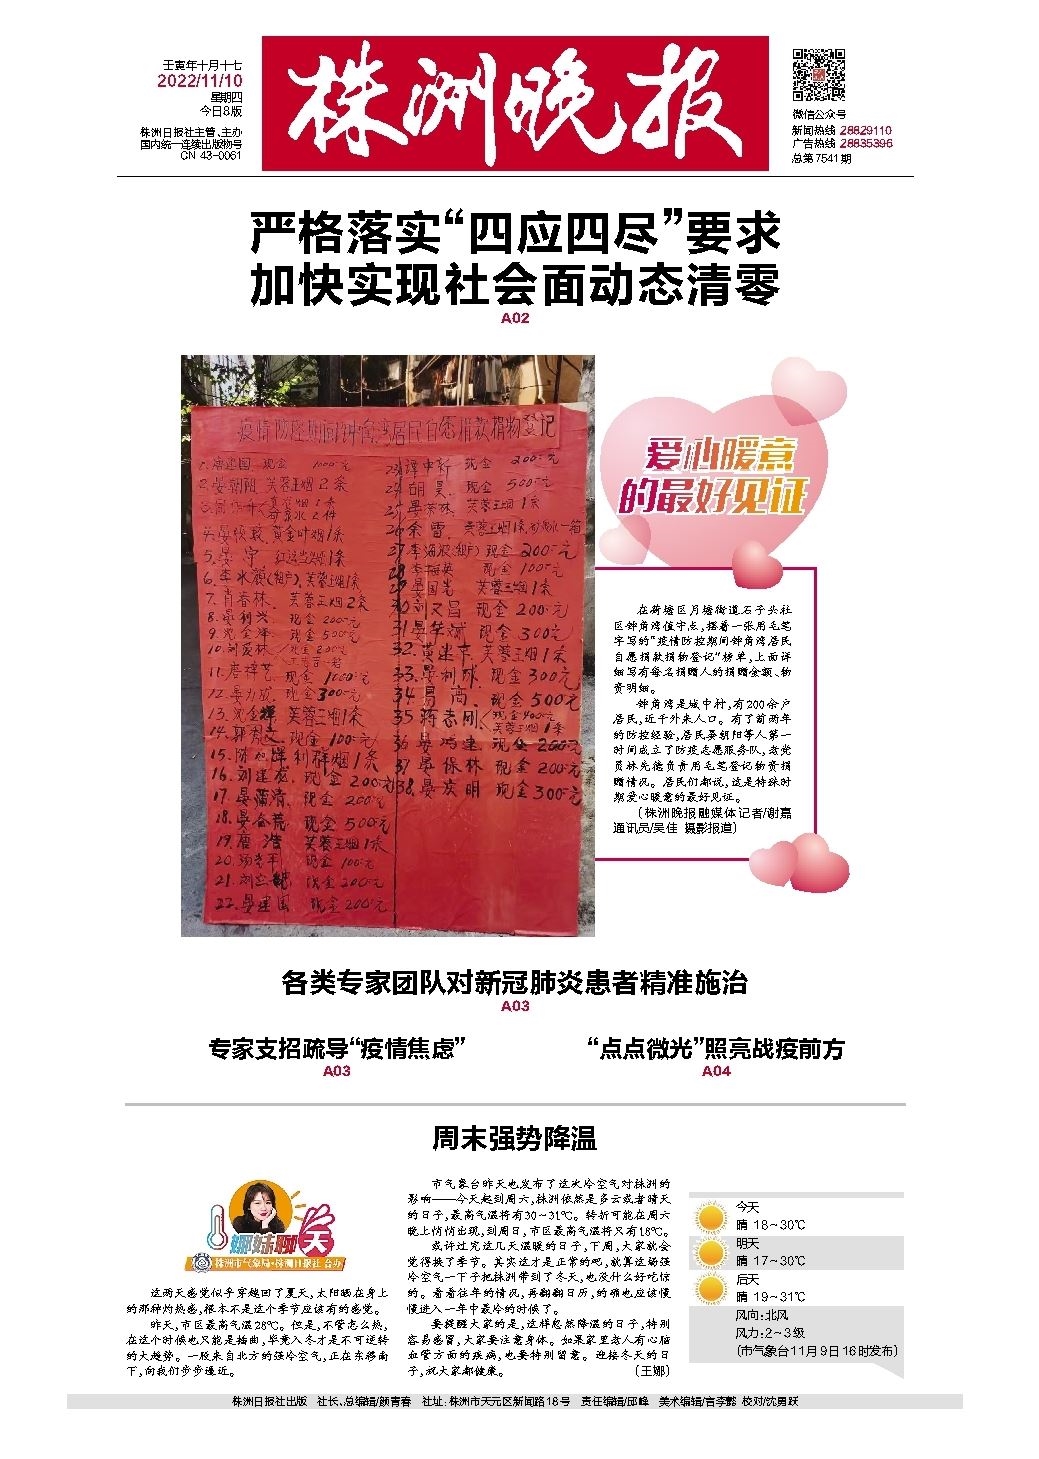 壬寅年十月十七
2022/11/10
星期四
今日8版
株洲日报社主管、主办
国内统一连续出版物号
CN 43-0061
株洲晚报
微信公众号
新闻热线 28829110
广告热线 28835396
总第7541期
严格落实“四应四尽”要求
加快实现社会面动态清零
A02
疫情防控期间钟窝湾居民自愿捐款捐物登记
1.唐建国 现金 1000元
2.晏朝阳 芙蓉王烟2条
5.晏守 红运当头烟1条
7.肖春林 芙蓉王烟2条
8.晏利兴 现金 200元
现金 500元
现金 1000元
现金 300元
13.沈金辉 芙蓉王烟1条
现金 100元
利群烟1条
现金 200元
现金 200元
现金 500元
19.唐浩 芙蓉王烟1条
现金 100元
现金 200元
22.晏建国 现金 200元
23.谭中新 现金 200元
24.胡昊 现金 500元
芙蓉王烟1条
26.余雷
现金 200元
现金 100元
29.晏国光 芙蓉王烟1条
30.刘又昌 现金 200元
31.晏华斌 现金 300元
32.黄建平 芙蓉王烟1条
33.晏利球 现金 300元
34.易高 现金 500元
35.蒋志刚 现金 400元
芙蓉王烟1条
36.晏鸿建 现金 200元
37.晏保林 现金 200元
38.晏庆明 现金 300元
爱心暖意
的最好见证
在荷塘区月塘街道石子头社
区钟窝湾值守点,摆着一张用毛笔
字写的“疫情防控期间钟窝湾居民
自愿捐款捐物登记”榜单,上面详
细写有每名捐赠人的捐赠金额、物
资明细。
钟窝湾是城中村,有200余户
居民,近千外来人口。有了前两年
的防控经验,居民晏朝阳等人第一
时间成立了防疫志愿服务队,老党
员林先德负责用毛笔登记物资捐
赠情况。居民们都说,这是特殊时
期爱心暖意的最好见证。
(株洲晚报融媒体记者/谢嘉
通讯员/吴佳 摄影报道)
各类专家团队对新冠肺炎患者精准施治
A03
专家支招疏导“疫情焦虑”
A03
“点点微光”照亮战疫前方
A04
周末强势降温
娜妹聊天
株洲市气象局·株洲日报社 合办
这两天感觉似乎穿越回了夏天,太阳晒在身上
的那种灼热感,根本不是这个季节应该有的感觉。
昨天,市区最高气温28℃。但是,不管怎么热,
在这个时候也只能是插曲,毕竟入冬才是不可逆转
的大趋势。一股来自北方的强冷空气,正在东移南
下,向我们步步逼近。
市气象台昨天也发布了这次冷空气对株洲的
影响——今天起到周六,株洲依然是多云或者晴天
的日子,最高气温将有30~31℃。转折可能在周六
晚上悄悄出现,到周日,市区最高气温将只有18℃。
或许过完这几天温暖的日子,下周,大家就会
觉得换了季节。其实这才是正常的吧,就算这场强
冷空气一下子把株洲带到了冬天,也没什么好吃惊
的。看看往年的情况,再翻翻日历,的确也应该慢
慢进入一年中最冷的时候了。
要提醒大家的是,这样忽然降温的日子,特别
容易感冒,大家要注意身体。如果家里老人有心脑
血管方面的疾病,也要特别留意。迎接冬天的日
子,祝大家都健康。 (王娜)
今天
晴 18~30℃
明天
晴 17~30℃
后天
晴 19~31℃
风向:北风
风力:2~3级
(市气象台11月9日16时发布)
株洲日报社出版 社长、总编辑/颜青春 社址:株洲市天元区新闻路18号 责任编辑/邱峰 美术编辑/言李懿 校对/沈勇跃